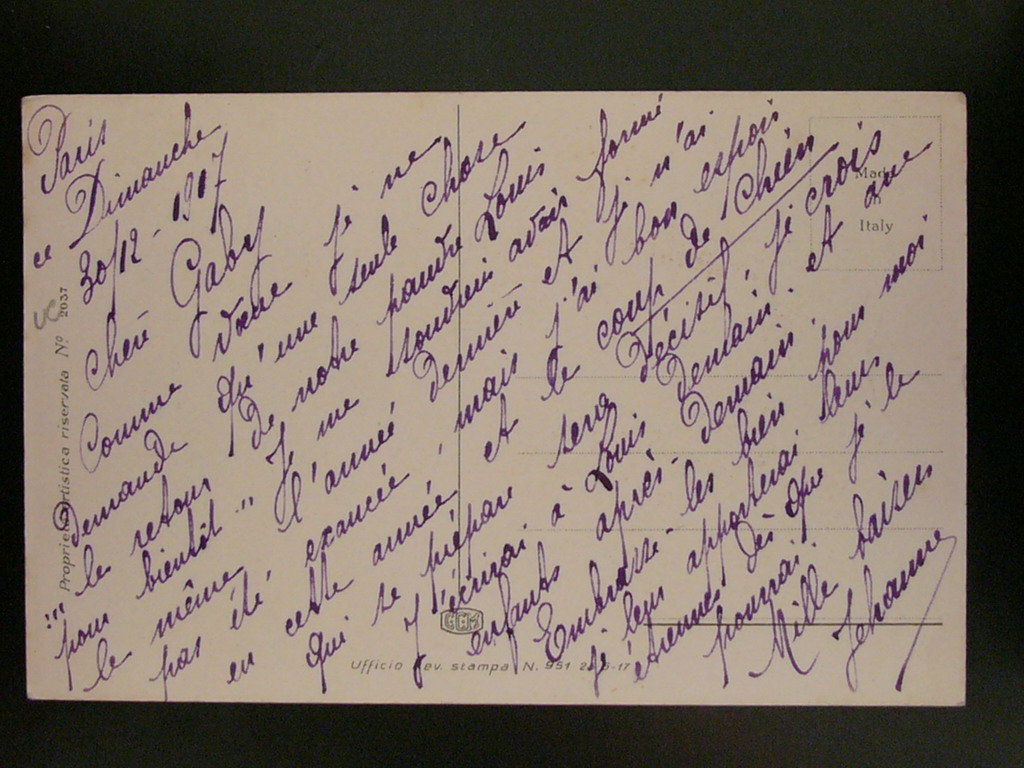 Paris
ce Dimanche
30/12 - 1917
Chère Gaby
Comme vœux je ne
demande qu'une seule chose
!!! le retour de notre pauvre Louis
pour bientôt !! Je me souviens avais formé
le même l'année dernière et je n'ai
pas été exaucée, mais j'ai bon espoir
en cette année et le coup de chien
qui se prépare sera décisif, je crois
J'écrirai à Louis demain. et aux
enfants après-demain.
Embrasse-les bien pour moi
je leur apporterai leurs
étrennes dès que je le
pourrai.
Mille baisers
Jehanne
Made
Italy
Proprietà artistica riservata Nº 2037
Ufficio Rev. stampa N. 951 22-5-17